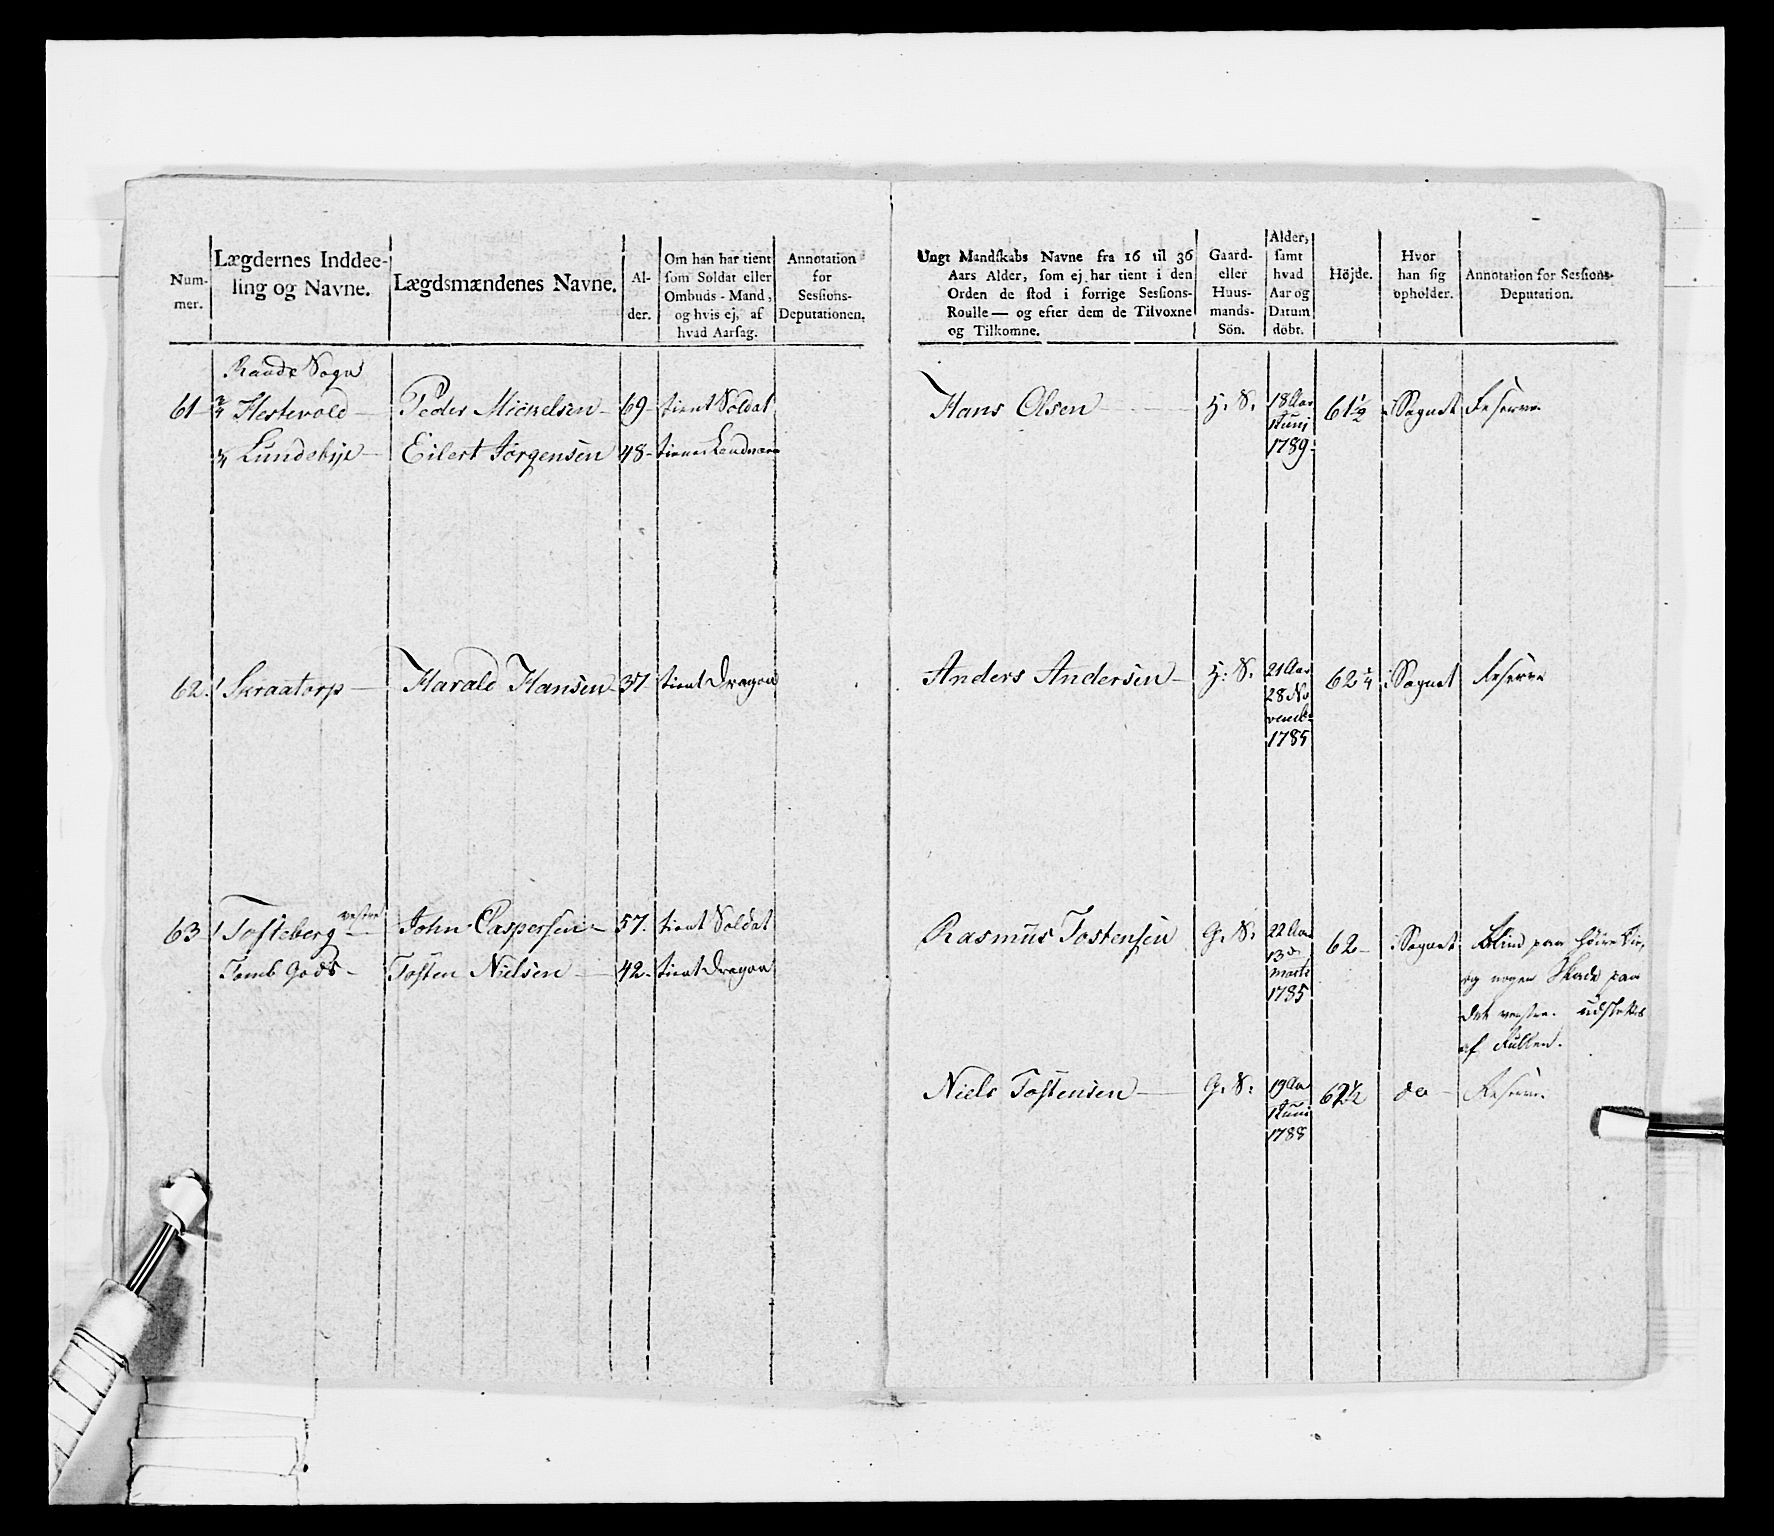 Num-
mer.
Lægdernes Inddee-
ling og Navne.
Lægdsmændenes Navne.
Al-
der.
Om han har tient
som Soldat eller
Ombuds-Mand,
og hvis ej, af
hvad Aarsag.
Annotation
for
Sessions-
Deputationen.
Raade Sogn
61 Hestevold Peder Mickelsen 69 tient Soldat
Lundebye Eilert Jørgensen 48 tienes Lendmann
62 1 Skraatorp Harald Hansen 37 tient Dragon
63 1 Tofteberg vestre John Caspersen 57. tient Soldat
Tomb Gods Tosten Nielsen 42 tient Dragon
Ungt Mandskabs Navne fra 16 til 36
Aars Alder, som ej har tient i den
Orden de stod i forrige Sessions-
Roulle — og efter dem de Tilvoxne
og Tilkomne.
Gaard-
eller
Huus-
mands-
Sön.
Alder,
samt
hvad
Aar og
Datum
döbt.
Höjde.
Hvor
han sig
opholder.
Annotation for Sessions-
Deputation.
Hans Olsen H. S. 18 Aar 61 1/2 i Sognet Reserve
1 Juni
1789
Anders Andersen H. S. 21 Aar 62 1/4 i Sognet Reserve
28 No
vemb:
1785
Rasmus Tostensen G. S. 22 Aar 62 i Sognet Blind paa høire Øie,
13 d
Marts og nogen Skade paa
1785 det venstre. udslettes
af Rullen.
Niels Tostensen G. S. 19 Aar 62 1/2 do Reserve
1 Juni
1788